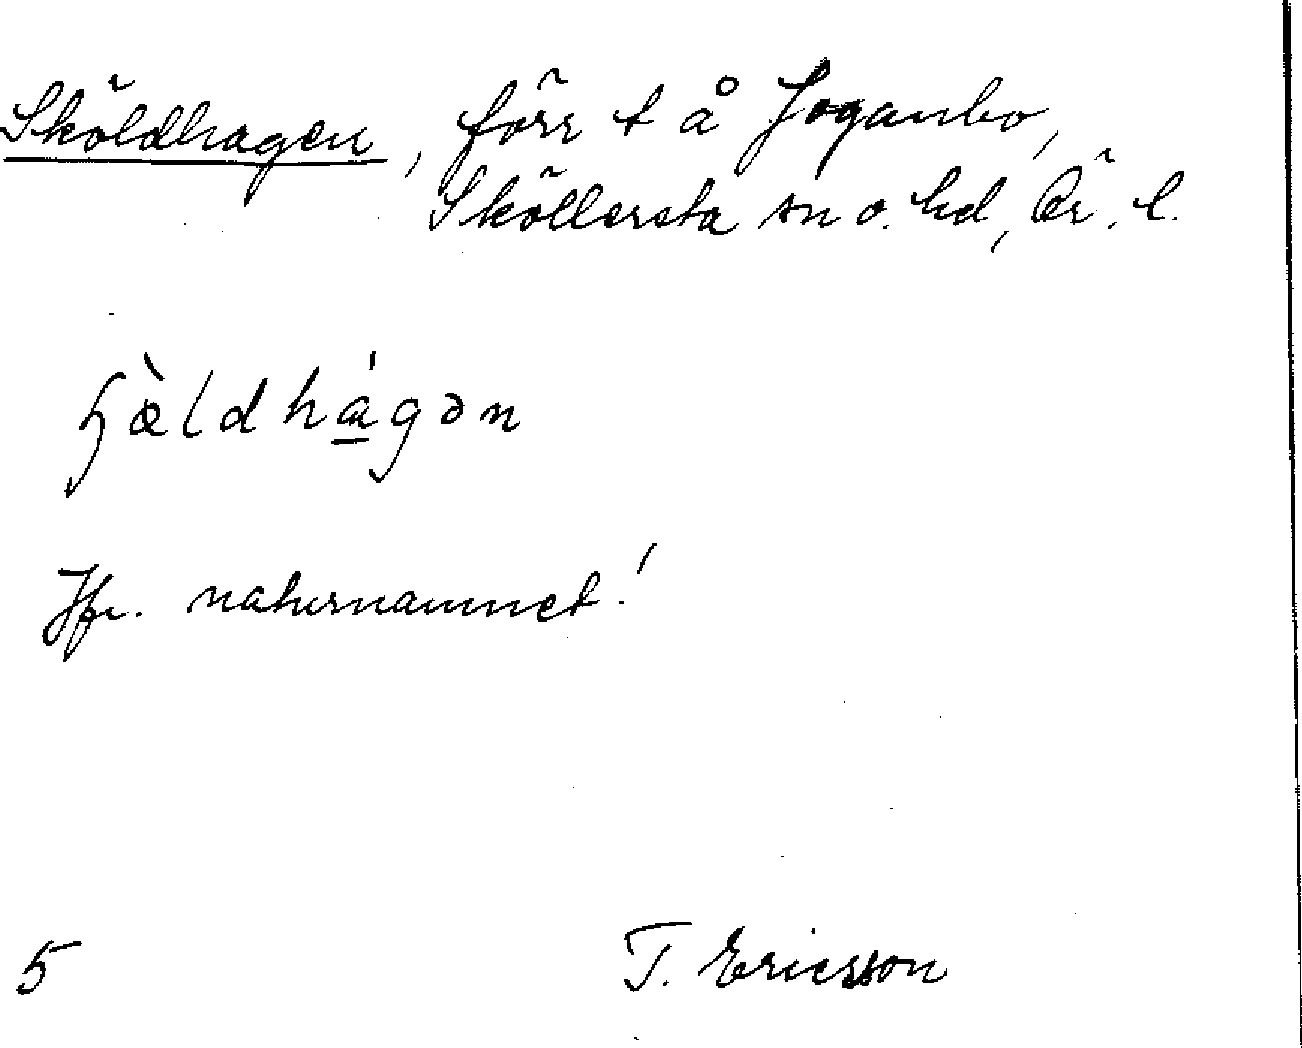 Sköldhagen, förr t å Joganbo,
Sköllersta sn o. hd, Ör. l.
ɧæ̀ldhágən
Jfr. naturnamnet!
5 T. Ericsson